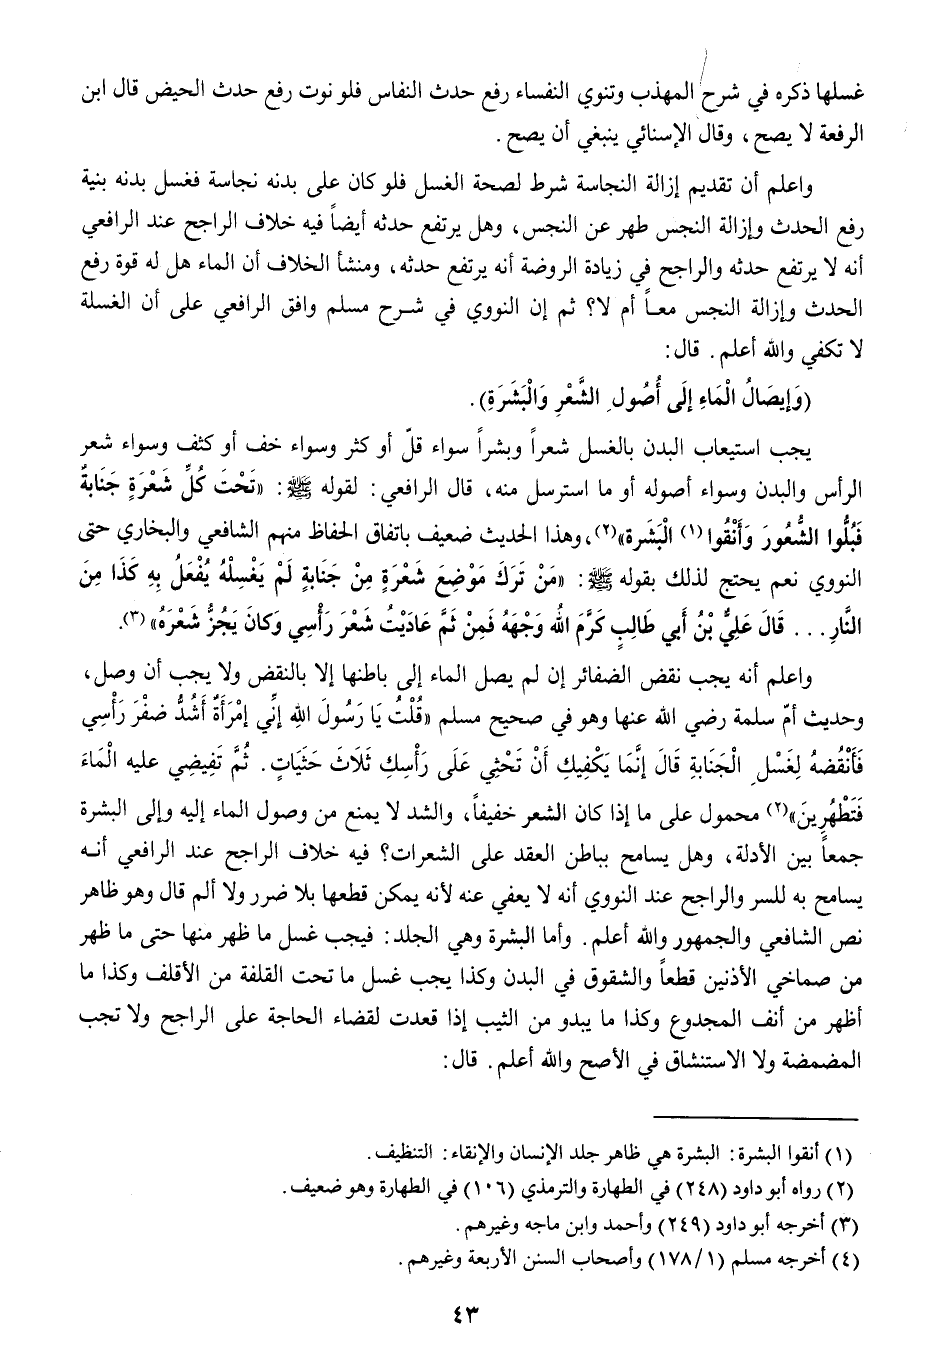 غسلها ذكره في شرح المهذب وتنوي النفساء رفع حدث النفاس فلو نوت رفع حدث الحيض قال ابن
الرفعة لا يصح، وقال الإسنائي ينبغي أن يصح.
واعلم أن تقديم إزالة النجاسة شرط لصحة الغسل فلو كان على بدنه نجاسة فغسل بدنه بنية
رفع الحدث وإزالة النجس طهر عن النجس، وهل يرتفع حدثه أيضاً فيه خلاف الراجح عند الرافعي
أنه لا يرتفع حدثه والراجح في زيادة الروضة أنه يرتفع حدثه، ومنشأ الخلاف أن الماء هل له قوة رفع
الحدث وإزالة النجس معاً أم لا؟ ثم إن النووي في شرح مسلم وافق الرافعي على أن الغسلة
لا تكفي والله أعلم. قال:
(وَإِيصَالُ الْمَاءِ إِلَى أُصُولِ الشَّعْرِ وَالْبَشَرَةِ).
يجب استيعاب البدن بالغسل شعراً وبشراً سواء قلّ أو كثر وسواء خف أو كثف وسواء شعر
الرأس والبدن وسواء أصوله أو ما استرسل منه، قال الرافعي: لقوله ﷺ: «تَحْتَ كُلِّ شَعْرَةٍ جَنَابَةٌ
فَبُلُّوا الشُّعُورَ وَأَنْقُوا (١) الْبَشَرة»(٢)، وهذا الحديث ضعيف باتفاق الحفاظ منهم الشافعي والبخاري حتى
النووي نعم يحتج لذلك بقوله ﷺ: «مَنْ تَرَكَ مَوْضِعَ شَعْرَةٍ مِنْ جَنَابَةٍ لَمْ يَغْسِلْهُ يُفْعَلُ بِهِ كَذَا مِنَ
النَّارِ... قَالَ عَلِيُّ بْنُ أَبي طَالِبٍ كَرَّمَ اللَّهُ وَجْهَهُ فَمِنْ ثَمَّ عَادَيْتُ شَعْرَ رَأْسِي وَكَانَ يَجُزُّ شَعْرَهُ»(٣).
واعلم أنه يجب نقض الضفائر إن لم يصل الماء إلى باطنها إلا بالنقض ولا يجب أن وصل،
وحديث أمّ سلمة رضي الله عنها وهو في صحيح مسلم «قُلْتُ يَا رَسُولَ اللهِ إِنِّي إِمْرَأَةٌ أَشُدُّ ضفْرَ رَأْسِي
فَأَنْقُضهُ لِغَسْلِ الْجَنَابَةِ قَالَ إِنَّمَا يَكْفِيكِ أَنْ تَحْثِي عَلَى رَأْسِكِ ثَلَاثَ حَثَيَاتٍ. ثُمَّ تَفِيضِي عليه الْمَاءَ
فَتَطْهُرِينَ»(٢) محمول على ما إذا كان الشعر خفيفاً، والشد لا يمنع من وصول الماء إليه وإلى البشرة
جمعاً بين الأدلة، وهل يسامح بباطن العقد على الشعرات؟ فيه خلاف الراجح عند الرافعي أنه
يسامح به للسر والراجح عند النووي أنه لا يعفي عنه لأنه يمكن قطعها بلا ضرر ولا ألم قال وهو ظاهر
نص الشافعي والجمهور والله أعلم. وأما البشرة وهي الجلد: فيجب غسل ما ظهر منها حتى ما ظهر
من صماخي الأذنين قطعاً والشقوق في البدن وكذا يجب غسل ما تحت القلفة من الأقلف وكذا ما
أظهر من أنف المجدوع وكذا ما يبدو من الثيب إذا قعدت لقضاء الحاجة على الراجح ولا تجب
المضمضة ولا الاستنشاق في الأصح والله أعلم. قال:
(١) أنقوا البشرة: البشرة هي ظاهر جلد الإنسان والإنقاء: التنظيف.
(٢) رواه أبو داود (٢٤٨) في الطهارة والترمذي (١٠٦) في الطهارة وهو ضعيف.
(٣) أخرجه أبو داود (٢٤٩) وأحمد وابن ماجه وغيرهم.
(٤) أخرجه مسلم (١/ ١٧٨) وأصحاب السنن الأربعة وغيرهم.
٤٣